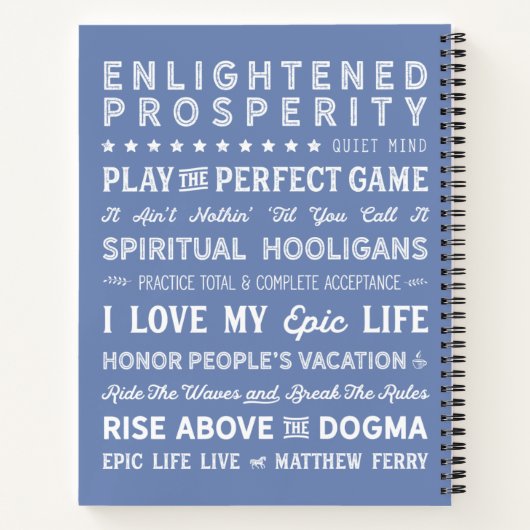 ENLIGHTENED
PROSPERITY
QUIET MIND
PLAY THE PERFECT GAME
It Ain't Nothin' 'Til You Call It
SPIRITUAL HOOLIGANS
PRACTICE TOTAL & COMPLETE ACCEPTANCE
I LOVE MY Epic LIFE
HONOR PEOPLE'S VACATION
Ride The Waves and Break The Rules
RISE ABOVE THE DOGMA
EPIC LIFE LIVE MATTHEW FERRY